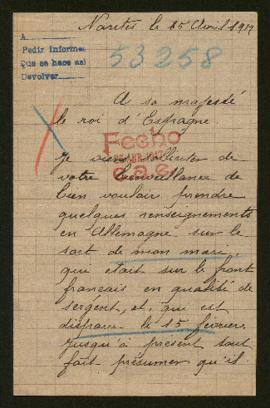 Nantes le 15 Avril 1917
A
Pedir informe
Que se hace así
Devolver
53258
A sa majesté
le roi d'Espagne
Fecho
Je viens solliciter de
votre bienveillance de
bien vouloir prendre
quelques renseignements
en Allemagne sur le
sort de mon mari
que était sur le front
français en qualité de
sergent, et, qui est
disparu le 15 février.
Jusqu'à présent tout
fait présumer qu'il